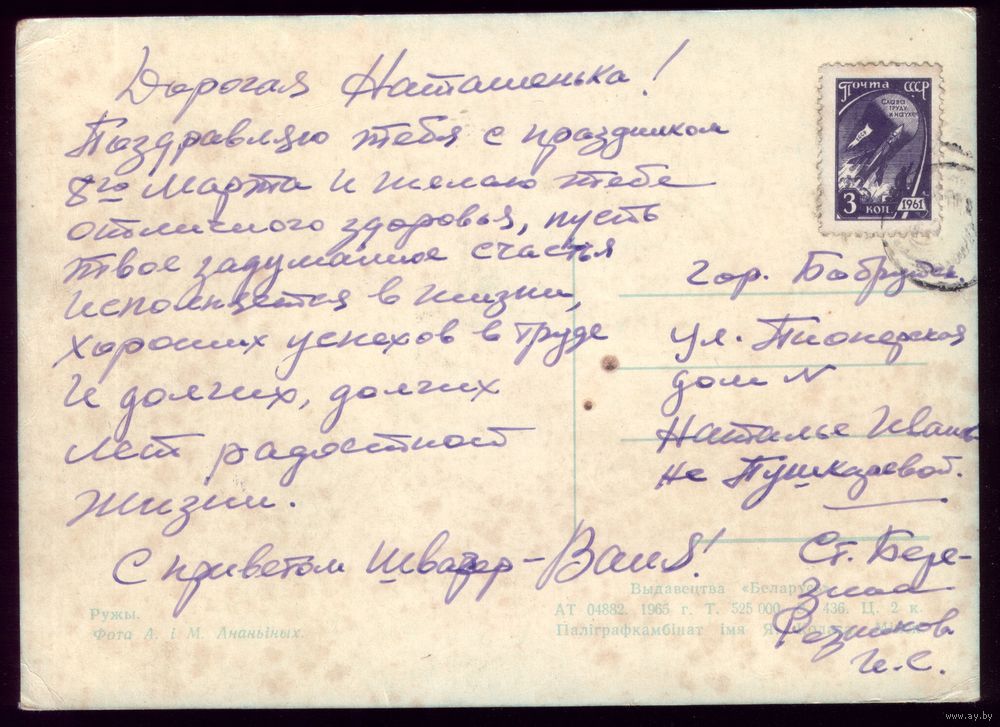 Дорогая Наташенька!
Поздравляю тебя с праздником
8го Марта и желаю тебе
отличного здоровья, пусть
твое задуманное счастья
исполняется в жизни,
хороших успехов в труде
и долгих, долгих
лет радостной
жизни.
С приветом Швагер-Ваня!
Почта СССР
СЛАВА
ТРУДУ
И НАУКЕ
3 КОП. 1961
гор. Бобруйск
ул. Пионерская
дом N
Наталье Иванов
не Пушкаревой.
Ст. Бере-
И.С.
Ружы.
Фота А. і М. Ананьіных.
Выдавецтва «Беларусь»
АТ 04882. 1965 г. Т. 525 000 436. Ц. 2 к.
Паліграфкамбінат імя Я. Коласа
www.ay.by